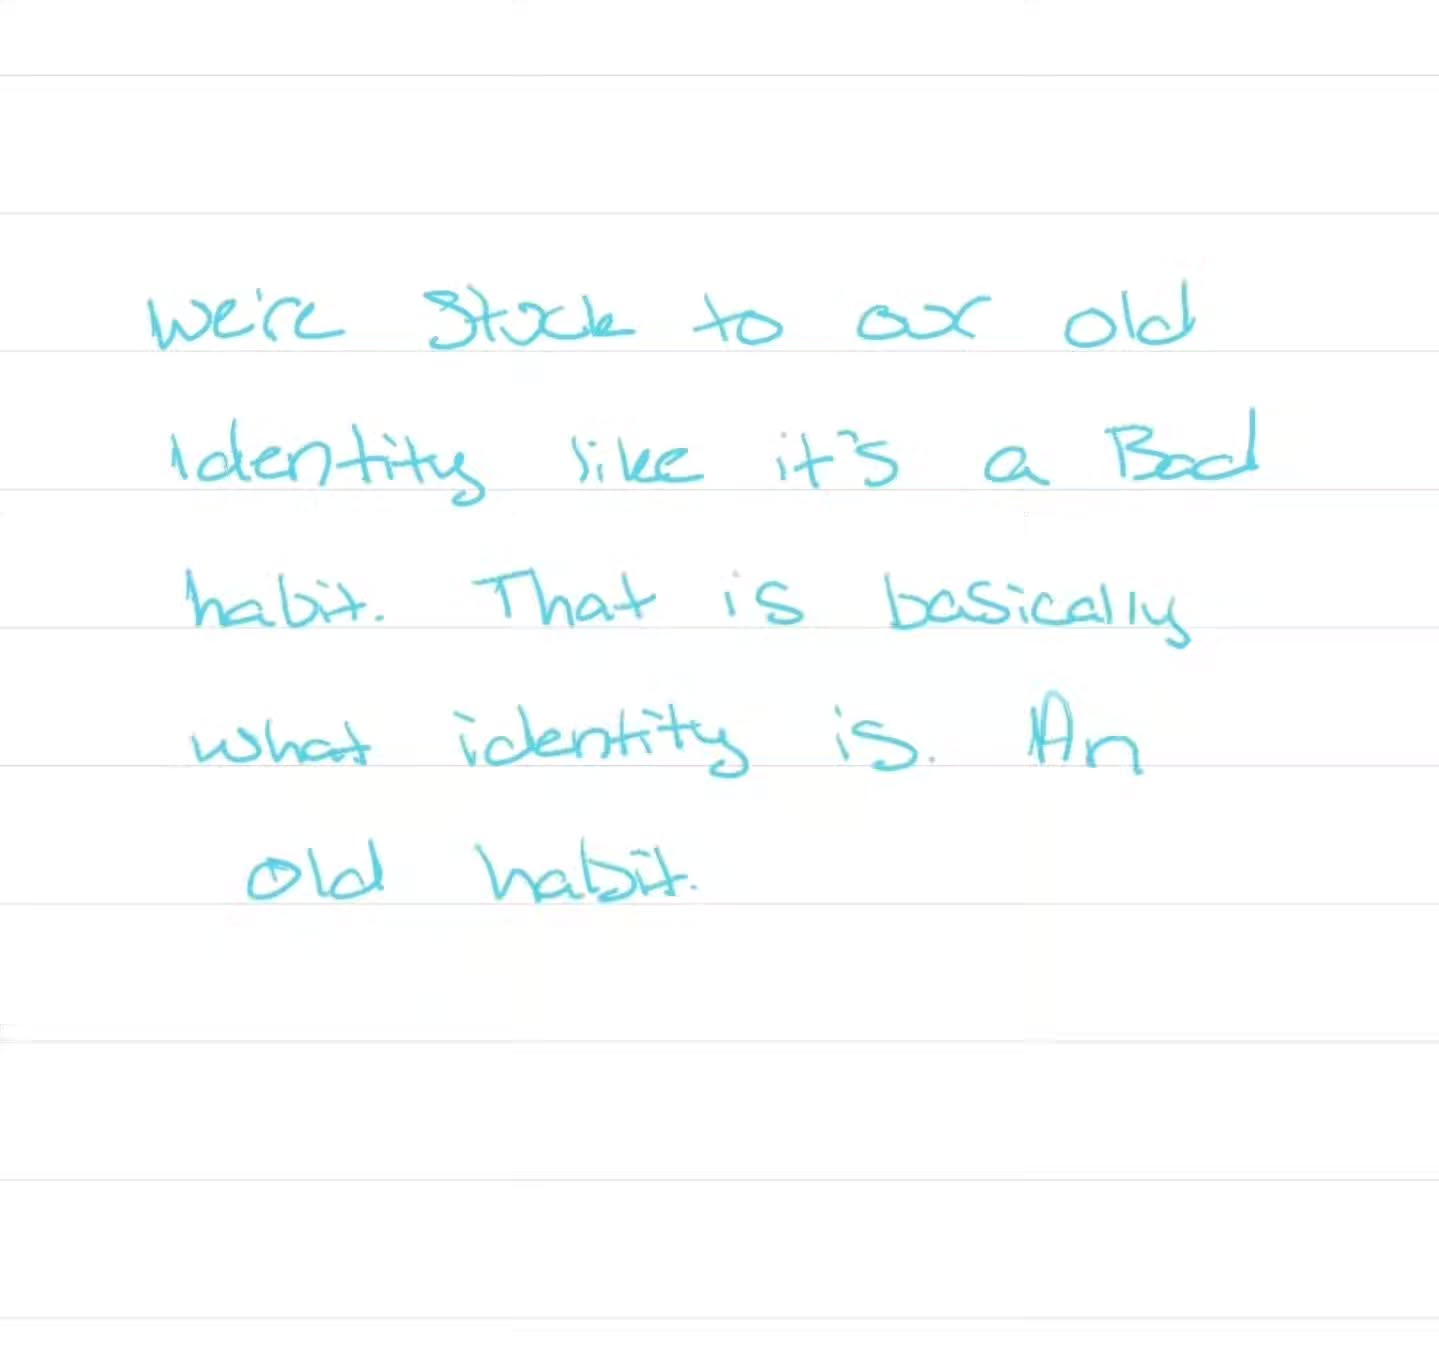 We're stuck to our old
Identity like it's a Bad
habit. That is basically
what identity is. An
old habit.